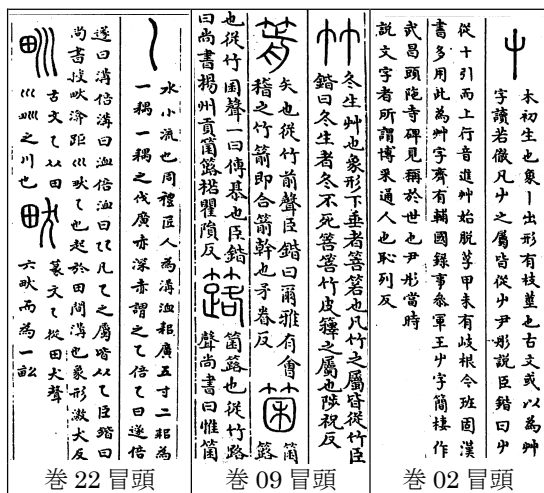 屮
木初生也象丨出形有枝莖也古文或以為艸
字讀若徹凡屮之屬皆從屮尹彤說臣鍇曰屮
從十引而上行音進艸始脫莩甲未有岐根今班固漢
書多用此為艸字齊有輔國錄事參軍王屮字簡棲作
武昌頭陁寺碑見稱於世也尹彤當時
說文字者所謂博采通人也恥列反
巻 02 冒頭
竹
冬生艸也象形下垂者箁箬也凡竹之屬皆從竹臣
鍇曰冬生者冬不死箁箬竹皮籜之屬也陟祝反
箭
矢也從竹前聲臣鍇曰爾雅有會
稽之竹箭即合箭幹也矛眷反
箘
箘簬
也從竹囷聲一曰博棊也臣鍇
曰尚書揚州貢箘簬楛瞿隕反
簬
箘簬也從竹路
聲尚書曰惟箘
巻 09 冒頭
𡿨
水小流也周禮匠人為溝洫耜廣五寸二耜為
一耦一耦之伐廣赤深赤謂之𡿨倍𡿨曰遂倍
遂曰溝倍溝曰洫倍洫曰巜凡𡿨之屬皆从𡿨臣鍇曰
尚書浚畎澮距巛畎𡿨也起於田間溝也象形激犬反
甽
古文𡿨从田
巛甽之川也
畎
篆文𡿨從田犬聲
六畎而為一畝
巻 22 冒頭